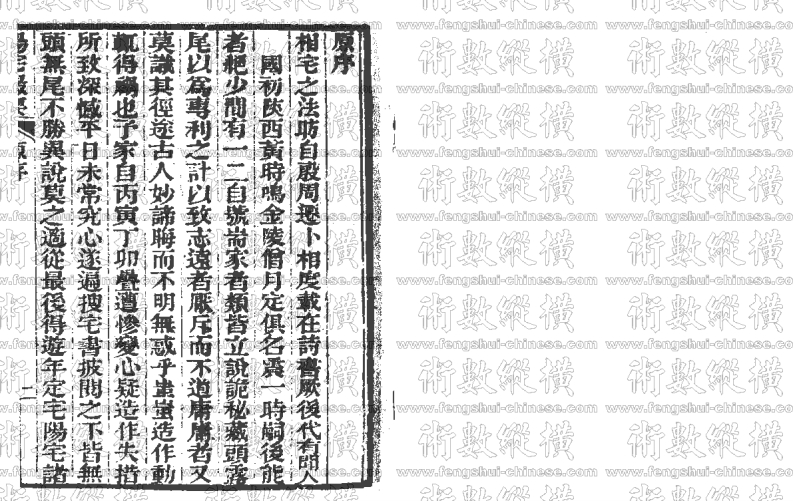 原序
相宅之法昉自殷周遷卜相度載在詩書厥後代有聞人
國初陝西黃時鳴金陵僧月定俱名震一時嗣後能
者絕少間有一二自號耑家者類皆立說詭秘藏頭露
尾以爲專利之計以致志遠者厭斥而不道庸庸者又
莫識其徑途古人妙諦晦而不明無惑乎蚩蚩造作動
輒得禍也予家自丙寅丁卯疊遭慘變心疑造作失措
所致深憾平日未常究心遂遍搜宅書披閱之下皆無
頭無尾不勝異說莫之適從最後得遊年定宅陽宅諸
原序
二
術數縱橫
www.fengshui-chinese.com